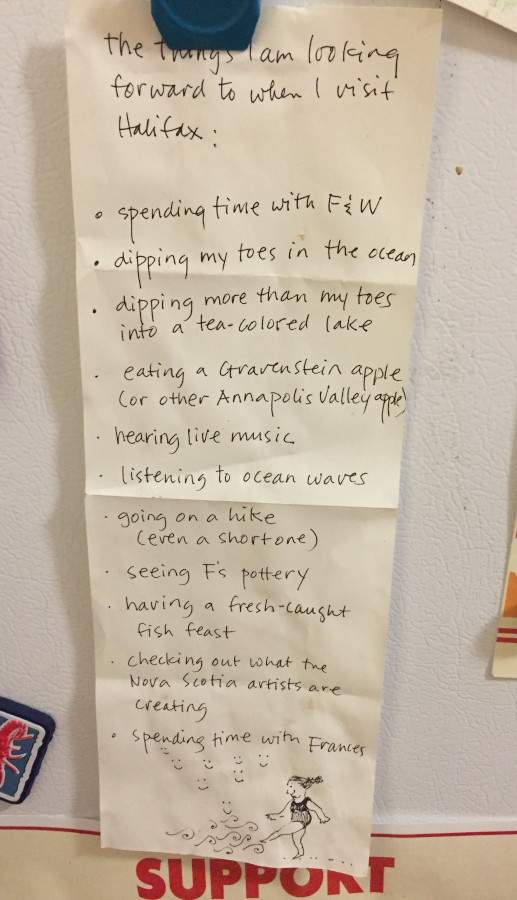 the things I am looking
forward to when I visit
Halifax:
• spending time with F & W
• dipping my toes in the ocean
• dipping more than my toes
into a tea-colored lake
• eating a Gravenstein apple
(or other Annapolis Valley apple)
• hearing live music
• listening to ocean waves
• going on a hike
(even a short one)
• seeing F's pottery
• having a fresh-caught
fish feast
• checking out what the
Nova Scotia artists are
creating
• spending time with Frances
SUPPORT